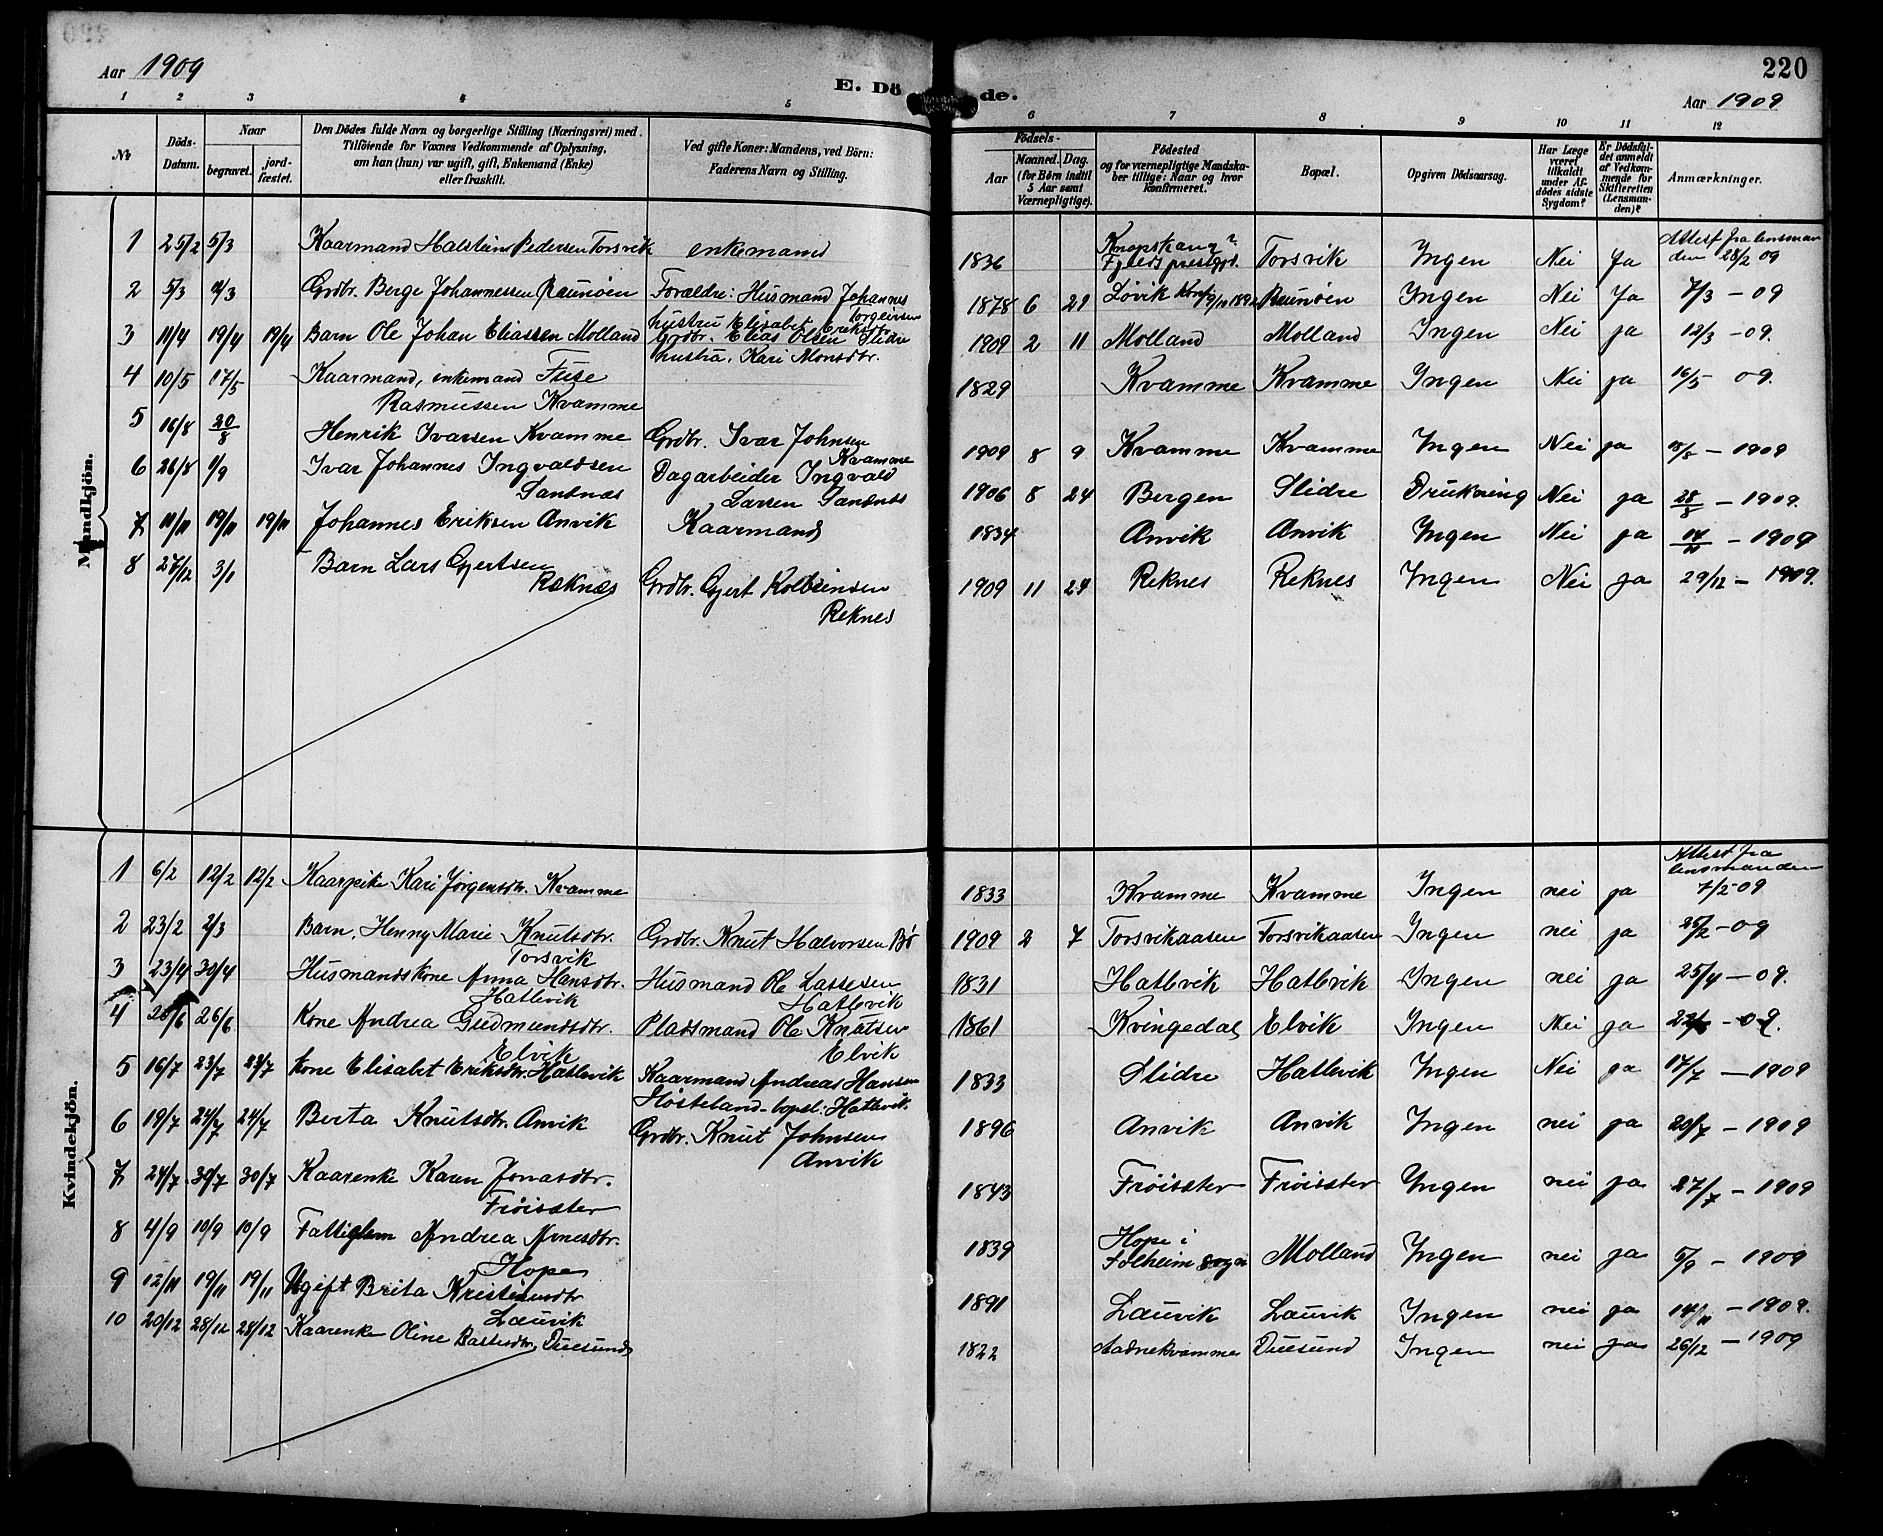 220
Aar 1909
E. Döde.
Aar 1909
1 2 3 4 5 6 7 8 9 10 11 12
No
Döds-Datum.
Naar
begravet.
jord-fæstet.
Den Dödes fulde Navn og borgerlige Stilling (Næringsvei) med
Tilföiende for Voxnes Vedkommende af Oplysning,
om han (hun) var ugift, gift, Enkemand (Enke)
eller fraskilt.
Ved gifte Koner: Mandens, ved Börn:
Faderens Navn og Stilling.
Födsels-
Aar
Maaned. Dag.
(for Börn indtil
5 Aar samt
Værnepligtige).
Födested
og for værnepligtige Mandska-
ber tillige: Naar og hvor
Konfirmeret.
Bopæl.
Opgiven Dödsaarsag.
Har Læge
været
tilkaldt
under Af-
dödes sidste
Sygdom?
Er Dödsfal-
det anmeldt
af Vedkom-
mende for
Skifteretten
(Lensman-
den)?
Anmærkninger.
Mandkjön.
1 25/2 5/3 Kaarmand Halstein Pedersen Torsvik enkemand 1836 Fjelds prestgjd. Torsvik Ingen Nei Ja Attest fra lensman
den 28/2 09
2 5/3 Grdbr. Berge Johannessen Raunöen Forældre: Husmand Johannes
hustru Elisabet Eriksdtr. 1878 6 29 Lövik Konf. Raunöen Ingen Nei Ja 7/3 - 09
3 11/4 19/4 19/4 Barn Ole Johan Eliassen Molland Grdbr. Elias Olsen Slidre
hustru, Kari Monsdtr. 1909 2 11 Molland Molland Ingen Nei ja 12/3 - 09.
4 10/5 17/5 Kaarmand, enkemand Fuse
Rasmussen Kvamme 1829 Kvamme Kvamme Ingen Nei ja 16/5 09.
5 16/8 20/8 Henrik Ivarsen Kvamme Grdbr. Ivar Johnsen
Kvamme 1909 8 9 Kvamme Kvamme Ingen Nei ja 18/8 - 1909
6 26/8 1/9 Ivar Johannes Ingvaldsen
Sandnæs Dagarbeider Ingvald
Larsen Sandnes 1906 8 24 Bergen Slidre Drukning Nei ja 28/8 - 1909.
7 11/11 19/11 19/11 Johannes Eriksen Anvik Kaarmand 1834 Anvik Anvik Ingen Nei ja - 1909
8 27/12 3/1 Barn Lars Gjertsen
Reknæs Grdbr. Gjert Kolbeinsen
Reknes 1909 11 24 Reknes Reknes Ingen Nei ja 29/12 - 1909.
Kvindekjön.
1 6/2 12/2 12/2 Kaarpike Kari Jörgensdtr. Kvamme 1833 Kvamme Kvamme Ingen nei ja Attest fra
lensmanden
7/2-09
2 23/2 2/3 Barn, Henny Marie Knutsdtr.
Torsvik Grdbr. Knut Halvorsen Bö 1909 2 7 Torsvikaasen Torsvikaasen Ingen nei ja 25/2-09
3 23/4 30/4 Husmandskone Anna Hansdtr.
Hatlevik Husmand Ole Lassesen
Hatlevik 1831 Hatlevik Hatlevik Ingen nei ja 25/4 - 09.
4 20/6 26/6 Kone Andrea Gudmundsdtr.
Elvik Pladsmand Ole Knutsen
Elvik 1861 Kvingedal Elvik Ingen Nei ja 22/6 - 09.
5 16/7 23/7 23/7 Kone Elisabet Eriksdtr. Hatlevik Kaarmand Andreas Hansen
Hosteland - bopæl: Hatlevik. 1833 Slidre Hatlevik Ingen Nei ja 17/7 - 1909
6 19/7 24/7 24/7 Berta Knutsdtr. Anvik Grdbr. Knut Johnsen
Anvik 1896 Anvik Anvik Ingen nei ja 20/7 - 1909
7 24/7 30/7 30/7 Kaarenke Karen Jonasdtr.
Fröisæter 1843 Fröisæter Fröisæter Ingen nei ja 27/7 - 1909
8 4/9 10/9 10/9 Fattiglem Andrea Arnesdtr.
Hope 1839 Hope i
Solheim sogn Molland Ingen nei ja 5/9 - 1909
9 12/11 19/11 19/11 Ugift Brita Kristiansdtr
Lauvik 1891 Lauvik Lauvik Ingen nei ja 14/11 - 1909.
10 20/12 28/12 28/12 Kaarenke Oline Duesund 1822 Aadnekvamme Duesund Ingen nei ja 26/12 - 1909